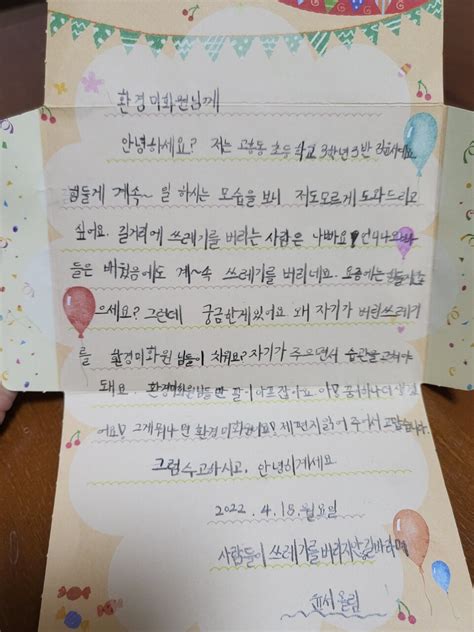 환경미화원님께
안녕하세요? 저는 초등학교 3학년 3반
힘들게 계속~ 일 하시는 모습을 보니 저도모르게 도와드리고
싶어요. 길거리에 쓰레기를 버리는 사람은 나빠요
들은 배웠음에도 계~속 쓰레기를 버리네요. 요즘에는
으세요? 그런데 궁금한게 있어요 왜 자기가 버린쓰레기
를 환경미화원님들이 치워요? 자기가 주으면서 습관을 고쳐야
돼요. 환경미화원님들만 많이 아프잖아요 아!
어요! 그게뭐냐면 환경미화원이요! 제 편지 읽어 주셔서 고맙습니다.
그럼 수고하시고, 안녕히계세요
2022. 4. 18. 월요일
사람들이 쓰레기를 버리지않길바라며
올림